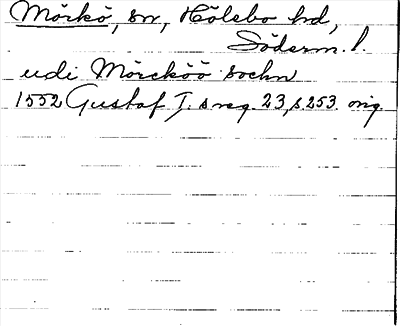 Mörkö, sn, Hölebo hd,
Söderm. l.
udi Mörcköö sochn
1552 Gustaf I:s reg. 23, s 253. orig.